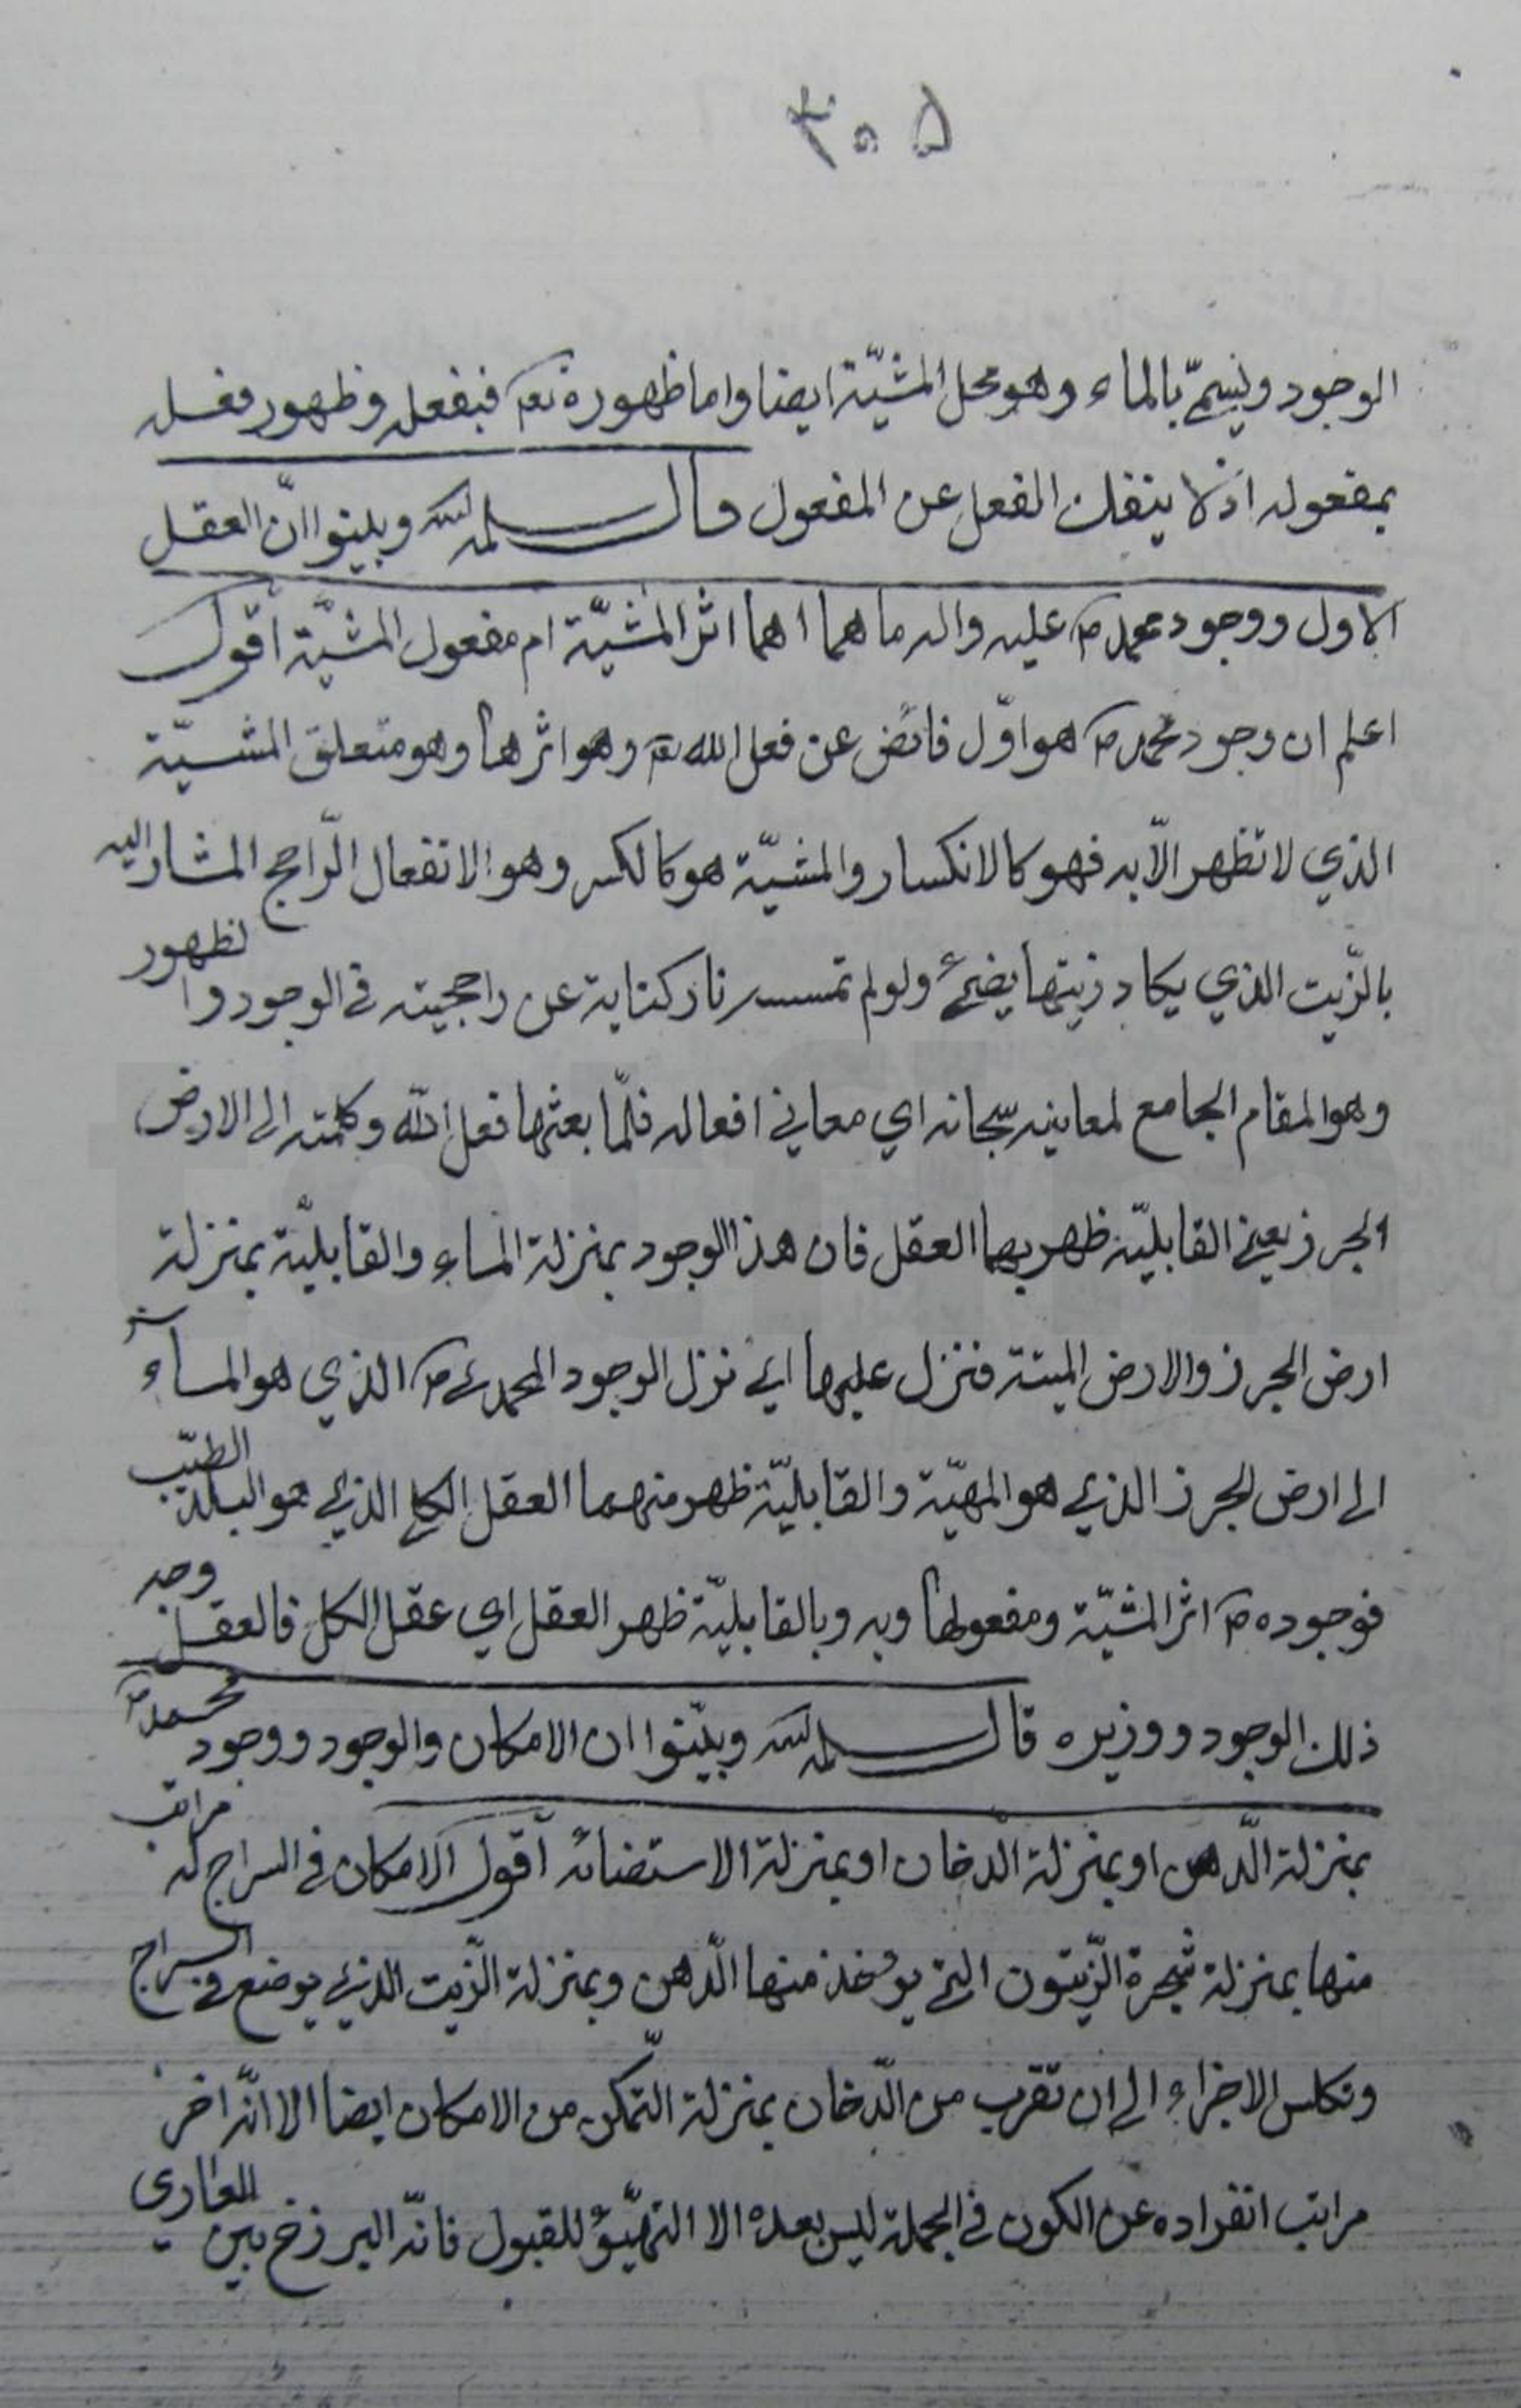 ۳۰۵
الوجود ويسمّى بالماء وهو محل المشيّة ايضا واما ظهوره تعه فبفعله وظهور فعله
بمفعوله اذ لا ينفك الفعل عن المفعول قال سلمه الله وبينوا انّ العقل
الاول ووجود محمد ص عليه واله ما هما اهما اثر المشيّة ام مفعول المشيّة اقول
اعلم ان وجود محمد ص هو اوّل فائض عن فعل الله تعه وهو اثرها وهو متعلق المشيّة
الذي لا تظهر الّا به فهو كالانكسار والمشيّة هو كالكسر وهو الانفعال الرّاجح المشار اليه
بالزّيت الذي يكاد زيتها يضئ ولو لم تمسسه نار كناية عن راجحيته في الوجود والظهور
وهو المقام الجامع لمعانيه سبحانه اي معاني افعاله فلمّا بعثها فعل الله وكلمته الى الارض
الجرز يعني القابليّة ظهر بهما العقل فان هذا الوجود بمنزلة الماء والقابليّة بمنزلة
ارض الجرز والارض الميتة فنزل عليها اي نزل الوجود المحمدي ص الذي هو الماء
الى ارض الجرز الذي هو المهيّة والقابليّة ظهر منهما العقل الكلي الذي هو البلد الطيّب
فوجوده ص اثر المشيّة ومفعولها وبه وبالقابليّة ظهر العقل اي عقل الكل فالعقل وجه
ذلك الوجود ووزيره قال سلمه الله وبيّنوا ان الامكان والوجود ووجود محمد ص
بمنزلة الدّهن او بمنزلة الدّخان او بمنزلة الاستضائه اقول الامكان في السراج له مراتب
منها بمنزلة شجرة الزّيتون التي يؤخذ منها الدّهن وبمنزلة الزّيت الذي يوضع في السراج
وتكلس الاجزاء الى ان تقرب من الدّخان بمنزلة التّمكن من الامكان ايضا الا انّه اخر
مراتب انفراده عن الكون في الجملة ليس بعده الا التهيّؤ للقبول فانّه البرزخ بين العاري